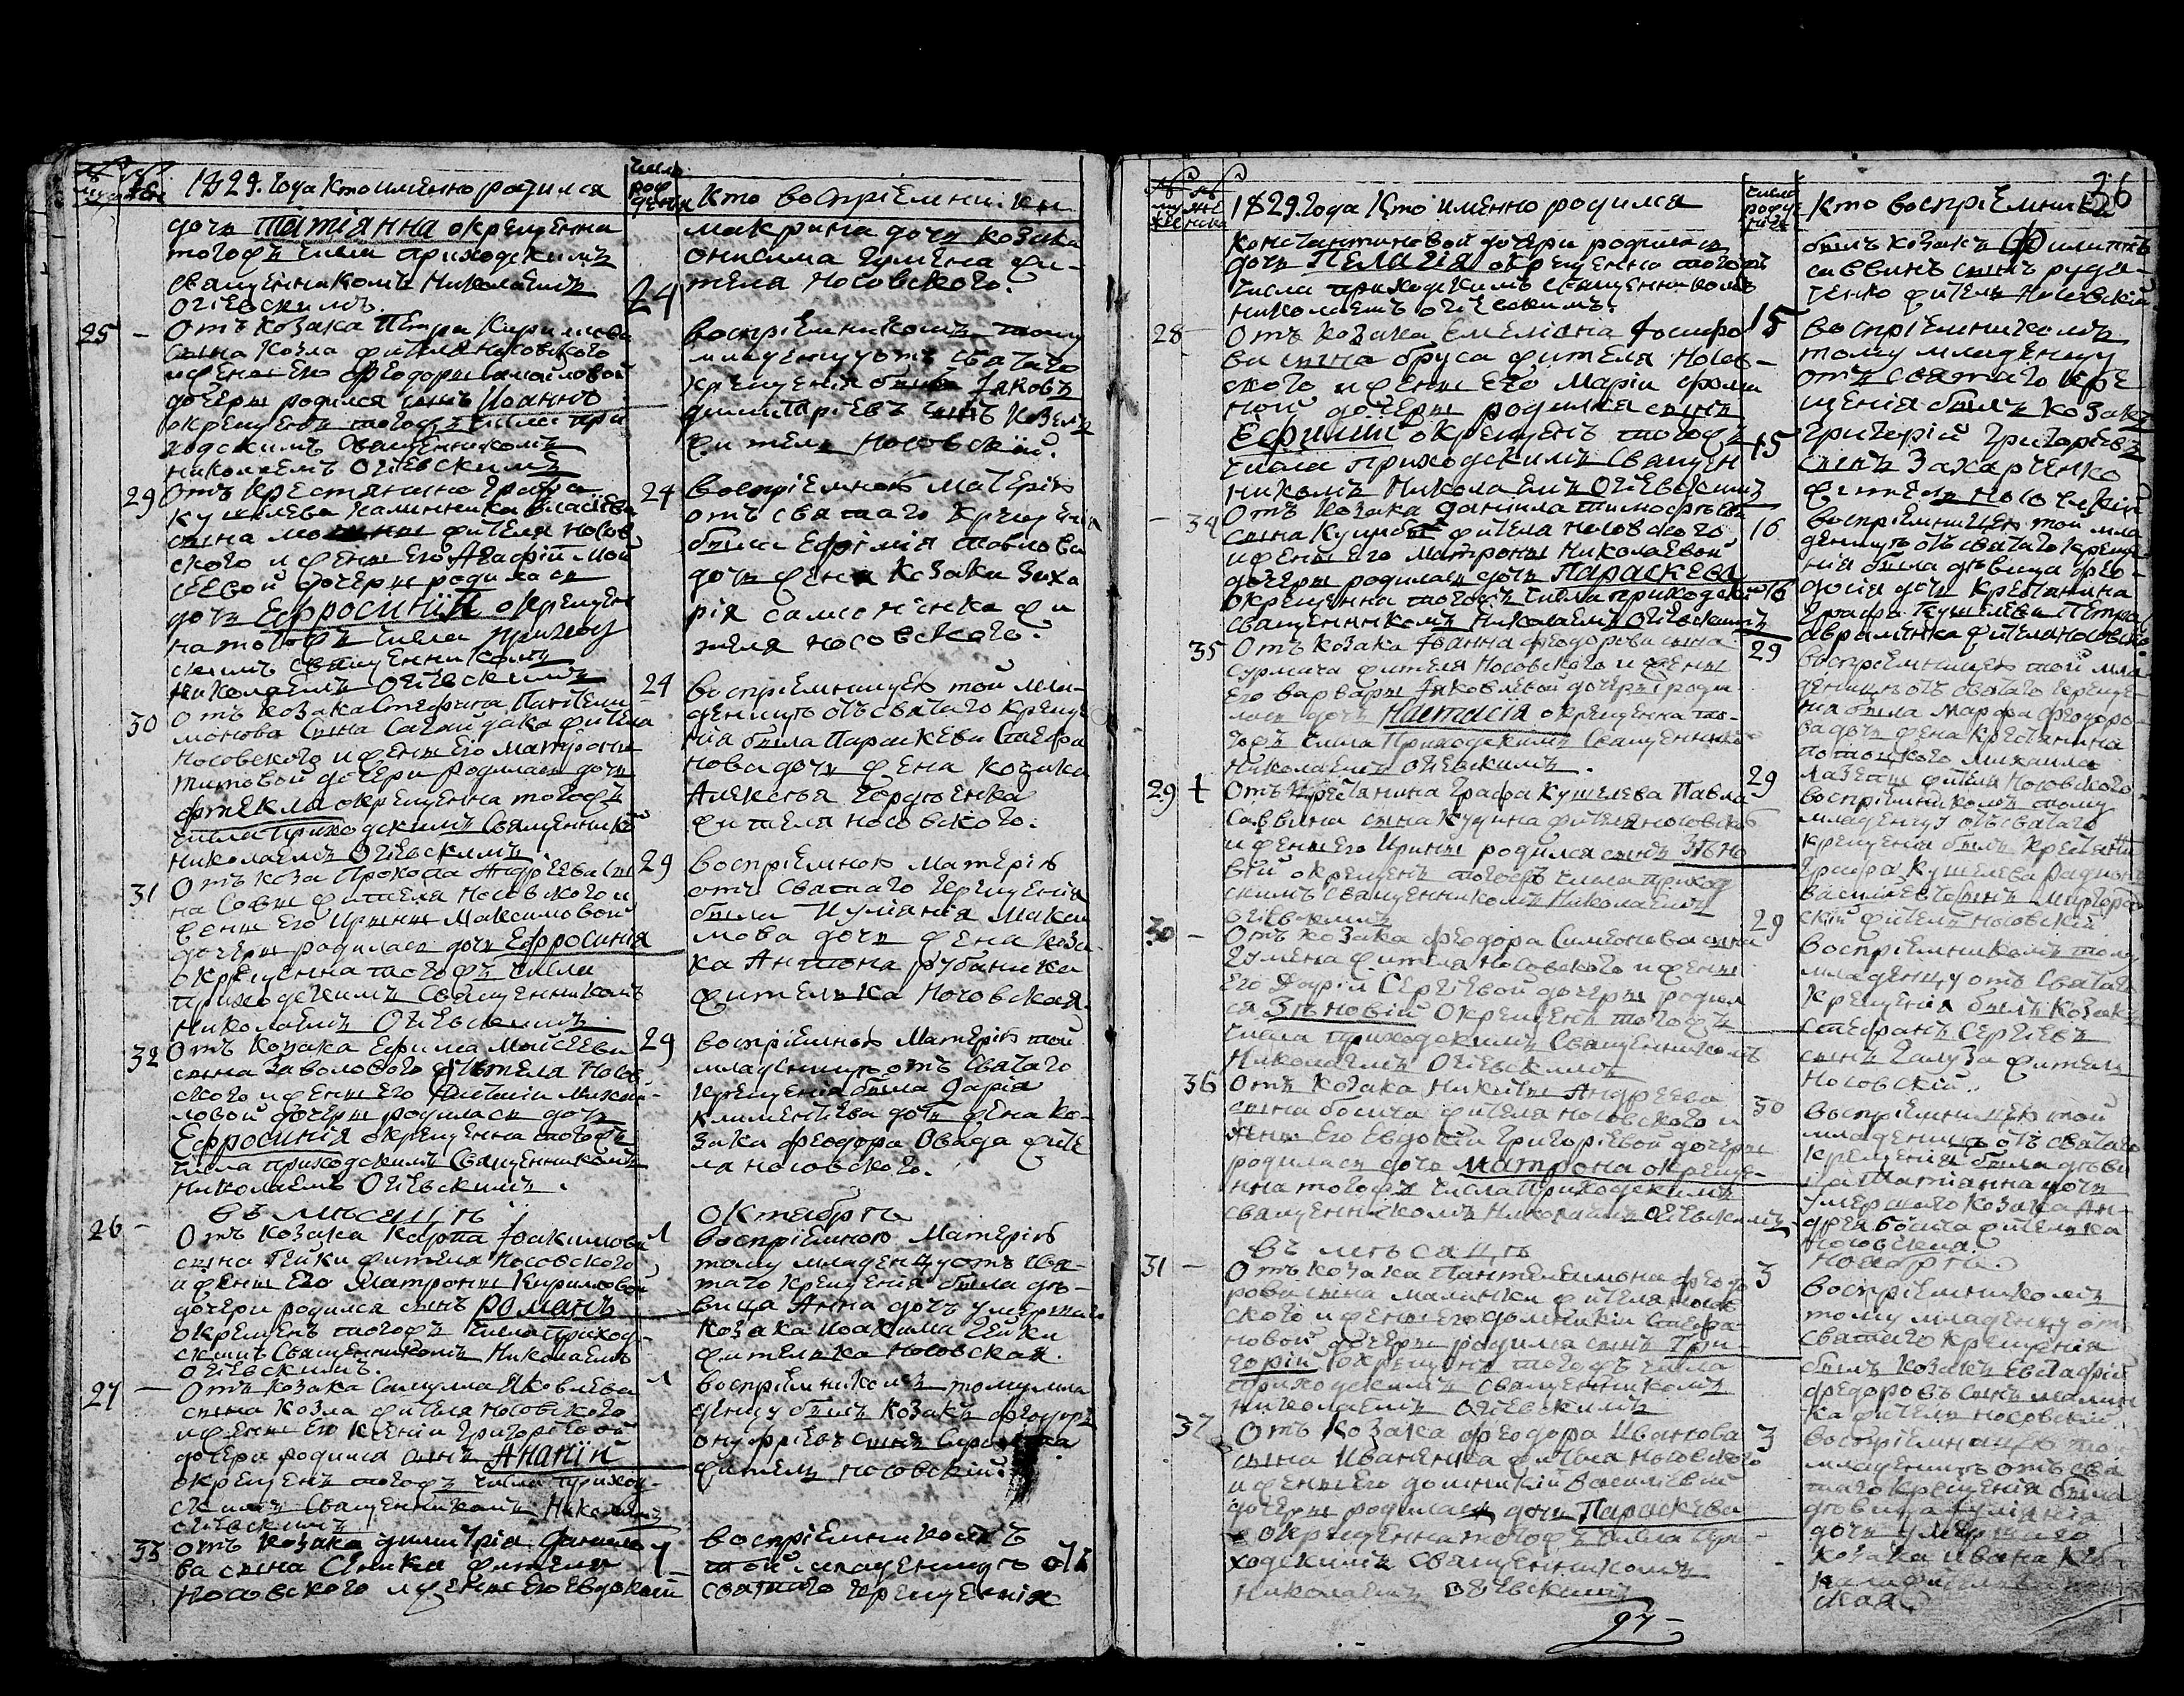 1829. Года Кто именно родился
числа рождения
Кто восприемники
дочь Татіянна окрещенна
тогожъ числа приходскимъ
священникомъ Николаемъ
Огіевскимъ
24
макрина дочь козака
онисима Гумена жи-
теля Носовского.
25 –
Отъ козака Петра Кирилова
сына Козла жителя носовского
и жены его Феодоры самойловой
дочеры родился сынъ Иоаннъ
окрещенъ тогожъ числа при
ходскимъ Священникомъ
николаемъ огіевскимъ
воспріемникомъ тому
младенцу отъ святаго
крещенія былъ Яковъ
димитріевъ сынъ Козелъ
житель Носовскій.
29
Отъ крестянина Графа
кушелева калинника власіева
сына жителя носов
ского и жены его Агафіи Мой
сеевой дочеры родилась
дочь Ефросинія окрещен
на тогожъ числа приход
скимъ священникомъ
Николаемъ Огіевскимъ
24
воспріемною матерію
отъ святаго крещенія
была Ефимія павлова
дочь жена козака Заха
рія самсоненка жи
теля носовского.
30
Отъ козака Стефана Пантели
монова Сына Сагайдака жителя
Носовского и жены его матроны
титовой дочери родилась дочь
Фтекла окрещенна тогожъ
числа приходскимъ Священнико
николаемъ Огіевскимъ
24
воспріемницею той мла-
деницъ отъ святаго креще
нія была Параскева Стефа
нова дочь жена козака
Алексѣя Гордѣенка
жителя носовского.
31
Отъ коза Прокопа Андреева сы
на Совы жителя Носовского и
жены его Ирины Максимовой
дочеры родилась дочь Ефросинія
окрещенна тогожъ числа
приходскимъ Священникомъ
Николаемъ Огіевскимъ
29
воспріемною матерію
отъ Святаго крещенія
была Иуліанія Макси
мова дочь жена коза
ка Антона рубаника
жителька Носовская.
32
Отъ козака Ефима Мойсеева
сына Заволового жителя Носов
ского и жены его Михай
ловой дочеры родилась дочь
Ефросинія окрещенна тогожъ
числа приходскимъ Священникомъ
Николаемъ Огіевскимъ.
29
воспріемною Матерію той
младеницъ отъ Святаго
крещенія была Дарія
климентіева дочь жена ко-
зака Феодора Овада жите
ля носовского.
въ мѣсяцѣ
октябрѣ
26 –
Отъ козака Карпа Иоакимова
сына Гейки жителя Носовского
и жены его Матроны Кириловой
дочери родился сынъ Романъ
окрещенъ тогожъ числа приход-
скимъ Священникомъ Николаемъ
Огіевскимъ.
1
воспріемною Матерію
тому младенцу отъ Свя-
таго крещенія была дѣ-
вица Анна дочь умершаго
козака иоакима Гейки
жителька носовская.
27 –
Отъ козака Самуила Яковлева
сына Козла жителя носовского
и жены его Ксеніи Григоріевой
дочери родился сынъ Ананій
окрещенъ тогожъ числа приход-
скимъ Священникомъ Николаемъ
огіевскимъ
1
воспріемникомъ тому мла
денцу былъ козакъ Феодоръ
онуфріевъ сынъ
житель носовскій.
33
отъ козака димитрія Данило
ва сына Сеника жителя
Носовского и жены его евдокіи
7
воспріемникомъ
той младеницѣ отъ
святаго крещенія
36
1829. Года Кто именно родился
числа рожде нія
Кто воспріемники
константиновой дочери родилась
дочь Пелагія окрещенна тогожъ
числа приходскимъ священникомъ
николаемъ огіевскимъ.
былъ козакъ Филиппъ
саввинъ сынъ руда-
ченко житель Носовскій
28 –
Отъ козака емеліана
ва сына бруса жителя Носов-
ского и жены его Маріи фоми
ной дочеры родился сынъ
Ефимій окрещенъ тогожъ
числа приходскимъ Священ
никомъ Николаемъ Огіевскимъ
15
15
воспріемникомъ
тому младенцу
отъ святаго кре
щенія былъ козакъ
григорій Григоріевъ
сынъ Захарченко
житель носовскій
– 34
Отъ козака данила тимофеева
сына жителя носовского
и жены его Матроны Николаевой
дочеры родилась дочь Параскева
окрещенна тогожъ числа приходски
священникомъ Николаемъ Огіевскимъ
16
16
воспріемницею той мла
деницѣ отъ святаго креще-
нія была дѣвица Фео-
досія дочь Крестянина
Графа Кушелева Петра
авраменка жителя носовско
35
Отъ козака Иоанна Феодорова сына
Сурмача жителя Носовского и жены
его варвары Яковлевой дочеры роди
лась дочь Настасія окрещенна то-
гожъ числа Приходскимъ Священнико
Николаемъ огіевскимъ.
29
воспріемницею той мла
деницѣ отъ святаго креще-
нія была Марфа Феодоро
ва дочь жена крестянина
потоцкого михаила
жителя Носовского.
29 +
Отъ крестянина Графа Кушелева Павла
Саввина сына Кудина жителя носовско
и жены его Ирины родился сынъ Зѣно
вій окрещенъ тогожъ числа приход
скимъ священникомъ Николаемъ
огіевскимъ
29
воспріемникомъ тому
младенцу отъ святаго
крещенія былъ крестянин
Графа Кушелева
василіевъ сынъ миргород
скій житель носовскій
30 –
Отъ козака Феодора Симеонова сына
Гумена жителя носовского и жены
его Даріи Сергіевой дочеры родил
ся Зѣновій окрещенъ тогожъ
числа приходскимъ Священникомъ
Николаемъ Огіевскимъ
29
воспріемникомъ тому
младенцу отъ Святаго
крещенія былъ козакъ
стефанъ Сергіевъ
сынъ Галуза житель
Носовскій.
36
Отъ козака Никиты Андреева
сына жителя носовского и
жены его Евдокіи Григоріевой дочеры
родилась дочь Матрона окреще-
нна тогожъ числа Приходскимъ
священникомъ Николаемъ Огіевскимъ
30
воспріемницею той
младеницѣ отъ святаго
крещенія была дѣви
ца Татіанна дочь
умершого козака Ан-
дрея жителька
носовская.
въ мѣсяцѣ
Ноябрѣ.
31 –
Отъ козака Пантелеимона Феодо
рова сына малинки жителя носов
ского и жены его домникіи Стефа-
новой дочеры родился сынъ Гри-
горій окрещенъ тогожъ числа
приходскимъ священникомъ
николаемъ огіевскимъ
3
воспріемникомъ
тому младенцу от
святаго крещенія
былъ козакъ Евстафій
федоровъ сынъ малин
ка житель носовскій.
37
Отъ козака Феодора Иванова
сына Иваненка жителя носовского
и жены его домникіи Василіевой
дочеры родилась дочь Параскева
окрещенна тогожъ числа при-
ходскимъ Священникомъ
николаемъ огіевскимъ
3
воспріемницею той
младеницѣ отъ свя
таго крещенія была
дѣвица Иуліанія
дочь умершаго
козака Ивана
ская.
97